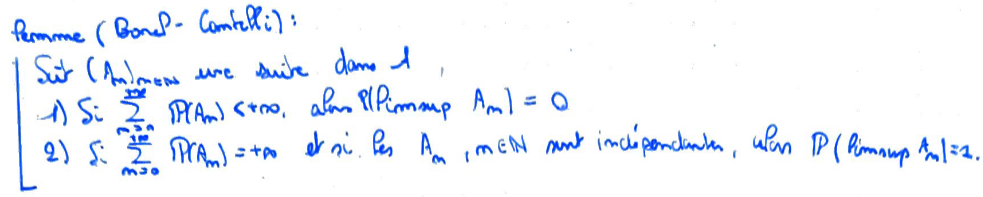 Lemme (Borel-Cantelli):
Soit (Aₙ)ₙ∈ℕ une suite dans 𝒜,
1) Si ∑_{n≥0}^{+∞} ℙ(Aₙ) < +∞, alors ℙ(limsup Aₙ) = 0
2) Si ∑_{n≥0}^{+∞} ℙ(Aₙ) = +∞ et si les Aₙ, n∈ℕ sont indépendantes, alors ℙ(limsup Aₙ) = 1.